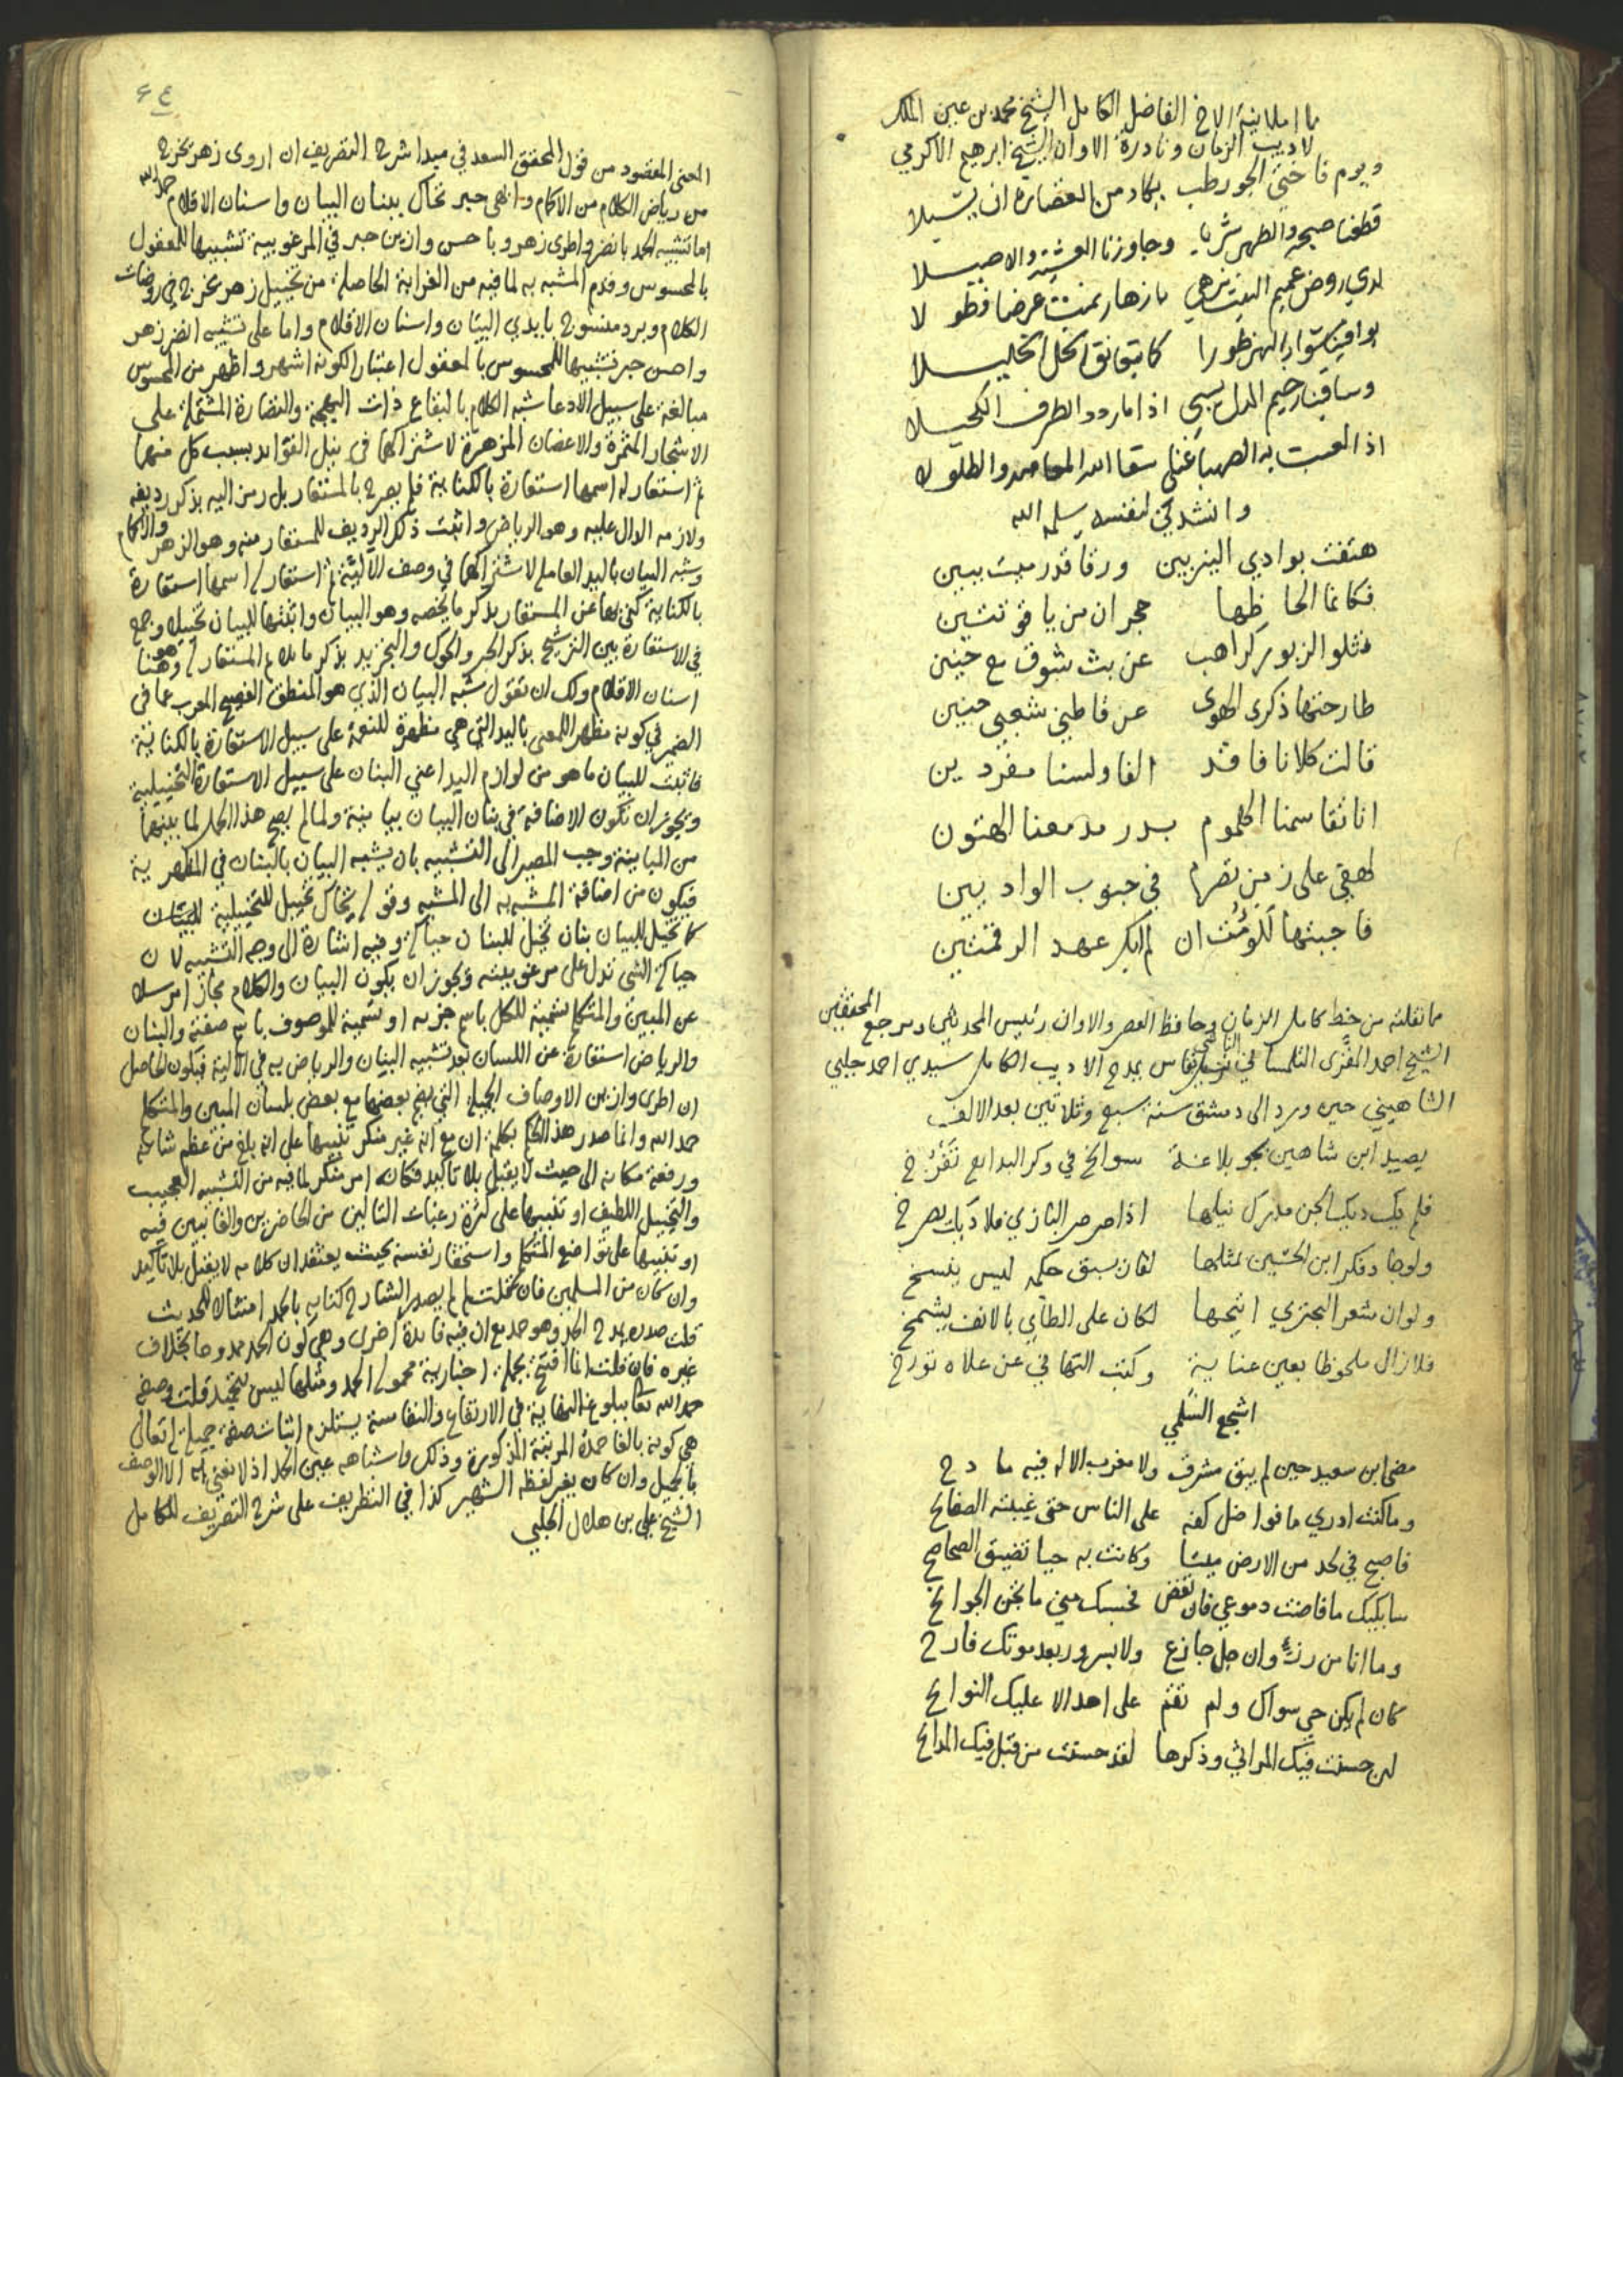 مما املانيه الاخ الفاضل الكامل الشيخ محمد بن عين الملك
لاديب الزمان ونادرة الاوان الشيخ ابرهيم الاكرمي
ويوم فاختي الجو رطب يكاد من الغضارة ان يسيلا
قطعنا صبحه والظهر شربا وجاوزنا العشية والاصيلا
لدي روض عميم النبت يزهي بازهار نمت عرضا وطولا
يوافينا نسوار النهر طورا كما يتعانق الخل الخليلا
وساقينا رخيم الدل يسبي اذا ما ردد الطرف الكحيلا
اذا لعبت به الصهبا غنا سقا الله المعاهد والطلولا
وانشدني لنفسه سلمه الله
هتفت بوادي النيربين ورقا قدرميت ببين
فكانما الحاظها حجران من ياقوتتين
فتلو الزبور كراهب عن بث شوق مع حنين
طارحتها ذكرى الهوى عن قاطني شعبي حنين
قالت كلانا فاقد الفا ولسنا مفردين
انا تقاسمنا الهموم بدر مدمعنا الهتون
لهفي على زمن تصرم في جنوب الواديين
فاجبتها للومت ان لم ابكر عهد الرقمتين
مما نقلته من خط كامل الزمان وحافظ العصر والاوان رئيس المحدثين ومرجع المحققين
الشيخ احمد المقري التلمساني يمدح الاديب الكامل سيدي احمد جلبي
الشاهيني حين ورد الى دمشق سنة سبع وثلاثين بعد الالف
يصيد ابن شاهين بجو بلاغة سوانح في وكر البدايع تفرخ
فلم يك ديك الجن مدرك نيلها اذا صرصر البازي فلا ديك يصرخ
ولو جاد فكر ابن الحسين بمثلها لقان سبق حكيمه ليس ينسخ
ولو ان شعر البحتري انتحها لكان على الطائي بالانف يشمخ
فلا زال ملحوظا بعين عناية وكتب التهاني عن علاه تورخ
اشجع السلمي
مضى ابن سعيد حين لم يبق مشرق ولا مغرب الا له فيه مادح
وما كنت ادري ما فواضل كفه على الناس حتى غيبته الصفايح
فاصبح في لحد من الارض ميتا وكانت به حيا تضيق الصحاصح
سابكيك ما فاضت دموعي فان تغض فحسبك مني ما تجن الجوانح
وما انا من رزء وان جل جازع ولا بسرور بعد موتك فارح
كان لم يكن حي سواك ولم تقم على احد الا عليك النوايح
لين حسنت فيك المراثي وذكرها لقد حسنت من قبل فيك المدايح
٦٤
المعنى المقصود من قول المحقق السعد في مبدا شرح التصريف ان اروى زهر يخرج
من رياض الكلام من الاكمام وابهى حبر تحاك ببنان البيان واسنان الاقلام حمد الله
اما تشبيه الحمد بانضر واطرى زهر وباحسن وازين حبر في المرغوبية تشبيها للمعقول
بالمحسوس وقدم المشبه به لما فيه من الغرابة الحاصلة من تخييل زهر يخرج في روضات
الكلام وبرد منسوج بايدي البيان واسنان الاقلام واما على تشبيه انضر زهر
واحسن حبر تشبيها للمحسوس بالمعقول اعتبارا لكونه اشهر واظهر من المحسوس
مبالغة على سبيل الادعا شبه الكلام بالبقاع ذات البهجة والنضارة المشتملة على
الاشجار المثمرة والاغصان المزهرة لاشتراكهما في نيل الفوايد بسبب كل منهما
ثم استعار له اسمها استعارة بالكناية فلم يصرح بالمستعار بل رمز اليه بذكر رديفه
ولازمه الدال عليه وهو الرياض واثبت ذلك الرديف للمستعار منه وهو الزهر والاكمام
وشبه البيان باليد العاملة لاشتراكهما في وصف الآلية ثم استعار له اسمها استعارة
بالكناية كنى بها عن المستعار بذكر ما يخصه وهو البنان واثبتها للبيان تخييلا وجمع
في الاستعارة بين الترشيح بذكر الحبر والحوك والتجريد بذكر ما يلايم المستعار له وهو هنا
اسنان الاقلام ولك ان تقول شبه البيان الذي هو المنطق الفصيح المعرب عما في
الضمير في كونه مظهرا للمعنى باليد التي هي مظهرة للنعمة على سبيل الاستعارة بالكناية
فاثبت للبيان ما هو من لوازم اليد اعني البنان على سبيل الاستعارة التخييلية
ويجوز ان تكون الاضافة في بنان البيان بيانية ولما لم يصح هذا الحمل لما بينهما
من المباينة وجب المصير الى التشبيه بان يشبه البيان بالبنان في المظهرية
فيكون من اضافة المشبه به الى المشبه وقوله يحاك تخييل للتخييلية للبيان
كما تخيل للبيان بنان تخيل للبنان حياكة وفيه اشارة الى وجه التشبيه لان
حياكة الشي تدل على مرغوبيته ويجوز ان يكون البيان والكلام مجازا مرسلا
عن المبين والمتكلم تسمية للكل باسم جزيه او تسمية للموصوف باسم صفته والبنان
والرياض استعارة عن اللسان بعد تشبيه البنان والرياض به في الآلية فيكون الحاصل
ان اطرى وازين الاوصاف الجميلة التي يضم بعضها مع بعض بلسان المبين والمتكلم
حمد الله وانما صدر هذا الحكم بكلمة ان مع انه غير منكر تنبيها على انه بلغ من عظم شانه
ورفعة مكانه الى حيث لا يقبل بلا تاكيد فكانه امر منكر لما فيه من التشبيه العجيب
والتخييل اللطيف او تنبيها على كثرة رغبات التالين من الحاضرين والغايبين فيه
او تنبيها على تواضع المتكلم واستحقار نفسه بحيث يعتقد ان كلامه لا يقبل بلا تاكيد
وان كان من المسلمين فان قلت لم لم يصدر الشارح كتابه بالحمد امتثالا للحديث
قلت صدره بمدح الحمد وهو حمد مع ان فيه فايدة اخرى وهي كون الحمد محمودا بخلاف
غيره فان قلت انما افتتح بجملة اخبارية محمولها الحمد ومثلها ليس بتحميد قلت وصف
حمد الله تعالى ببلوغ النهاية في الارتفاع والنفاسة يستلزم اثبات صفة جميلة له تعالى
هي كونه بالغا حمده المرتبة المذكورة وذلك واشباهه عين الحمد اذ لا نعني به الا الوصف
بالجميل وان كان بغير لفظه الشهير كذا في التطريف على شرح التصريف للكامل
الشيخ علي بن هلال الحلبي